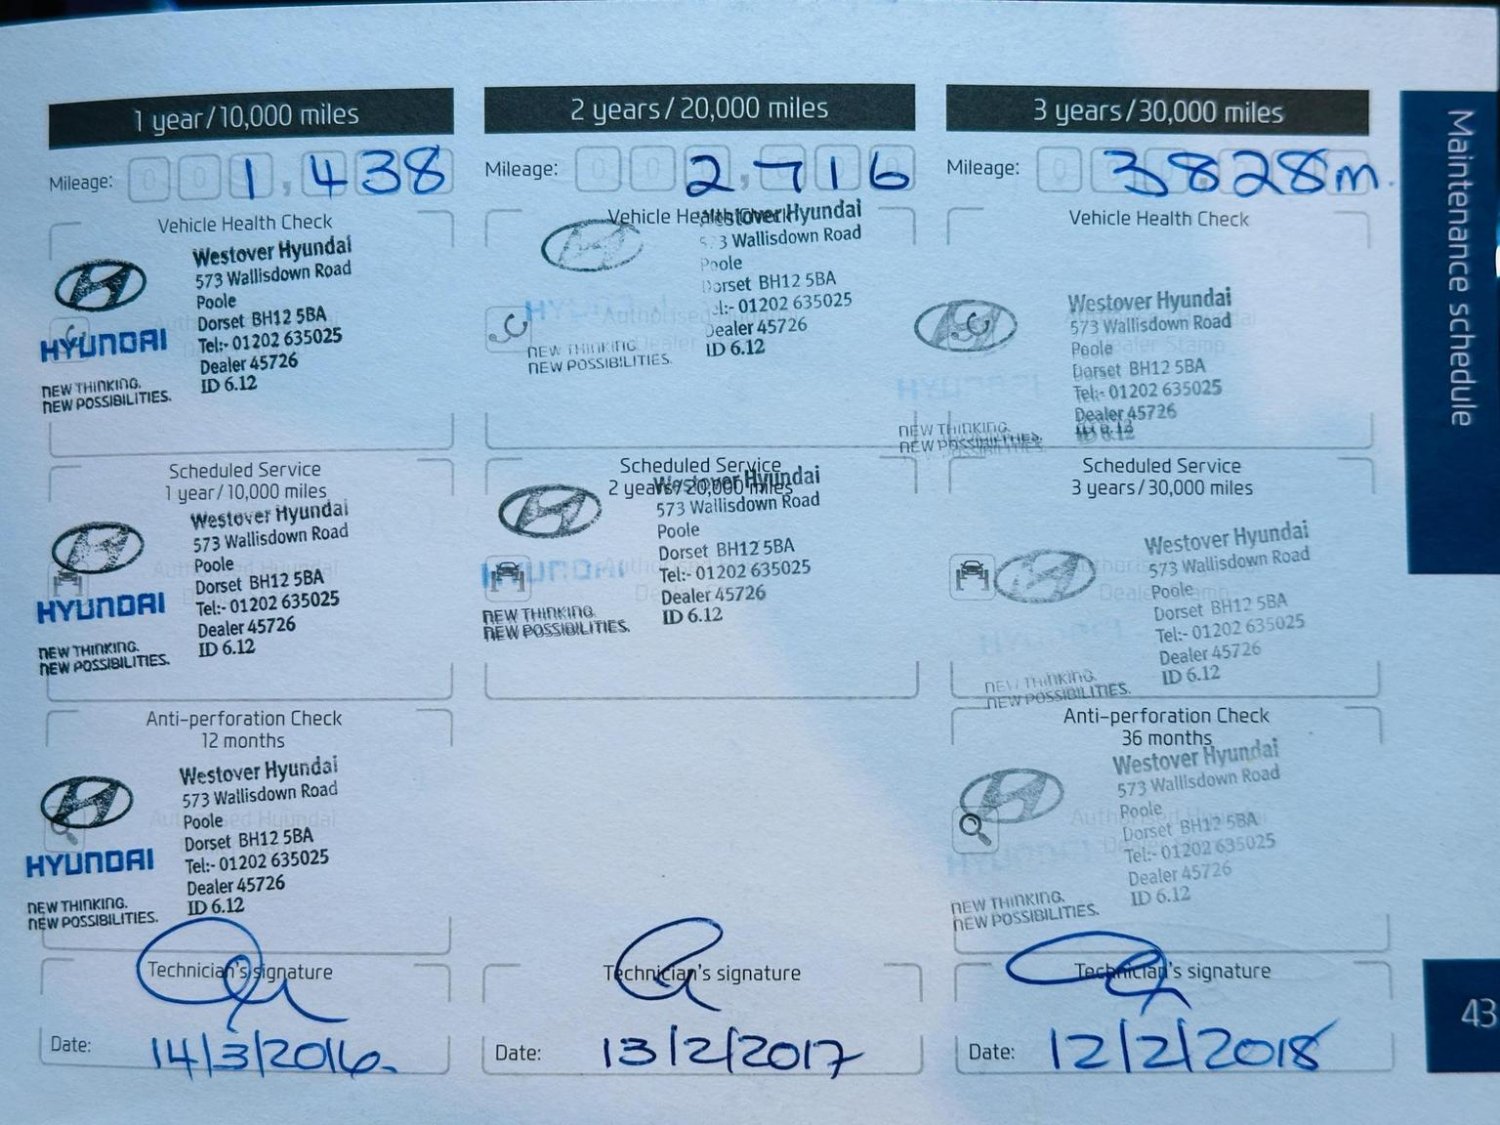 1 year/10,000 miles
Mileage: 001,438
Vehicle Health Check
Westover Hyundai
573 Wallisdown Road
Poole
Dorset BH12 5BA
Tel:- 01202 635025
Dealer 45726
ID 6.12
HYUNDAI
NEW THINKING.
NEW POSSIBILITIES.
Scheduled Service
1 year/10,000 miles
Westover Hyundai
573 Wallisdown Road
Poole
Dorset BH12 5BA
Tel:- 01202 635025
Dealer 45726
ID 6.12
HYUNDAI
NEW THINKING.
NEW POSSIBILITIES.
Anti-perforation Check
12 months
Westover Hyundai
573 Wallisdown Road
Poole
Dorset BH12 5BA
Tel:- 01202 635025
Dealer 45726
ID 6.12
HYUNDAI
NEW THINKING.
NEW POSSIBILITIES.
Technician's signature
Date: 14/3/2016.
2 years/20,000 miles
Mileage: 002,716
Vehicle Health Check
Westover Hyundai
573 Wallisdown Road
Poole
Dorset BH12 5BA
Tel:- 01202 635025
Dealer 45726
ID 6.12
NEW THINKING.
NEW POSSIBILITIES.
Scheduled Service
2 years/20,000 miles
Westover Hyundai
573 Wallisdown Road
Poole
Dorset BH12 5BA
Tel:- 01202 635025
Dealer 45726
ID 6.12
HYUNDAI
NEW THINKING.
NEW POSSIBILITIES.
Technician's signature
Date: 13/2/2017
3 years/30,000 miles
Mileage: 3828m.
Vehicle Health Check
Westover Hyundai
573 Wallisdown Road
Poole
Dorset BH12 5BA
Tel:- 01202 635025
Dealer 45726
ID 6.12
NEW THINKING.
NEW POSSIBILITIES.
Scheduled Service
3 years/30,000 miles
Westover Hyundai
573 Wallisdown Road
Poole
Dorset BH12 5BA
Tel:- 01202 635025
Dealer 45726
ID 6.12
NEW THINKING.
NEW POSSIBILITIES.
Anti-perforation Check
36 months
Westover Hyundai
573 Wallisdown Road
Poole
Dorset BH12 5BA
Tel:- 01202 635025
Dealer 45726
ID 6.12
NEW THINKING.
NEW POSSIBILITIES.
Technician's signature
Date: 12/2/2018
Maintenance schedule
43